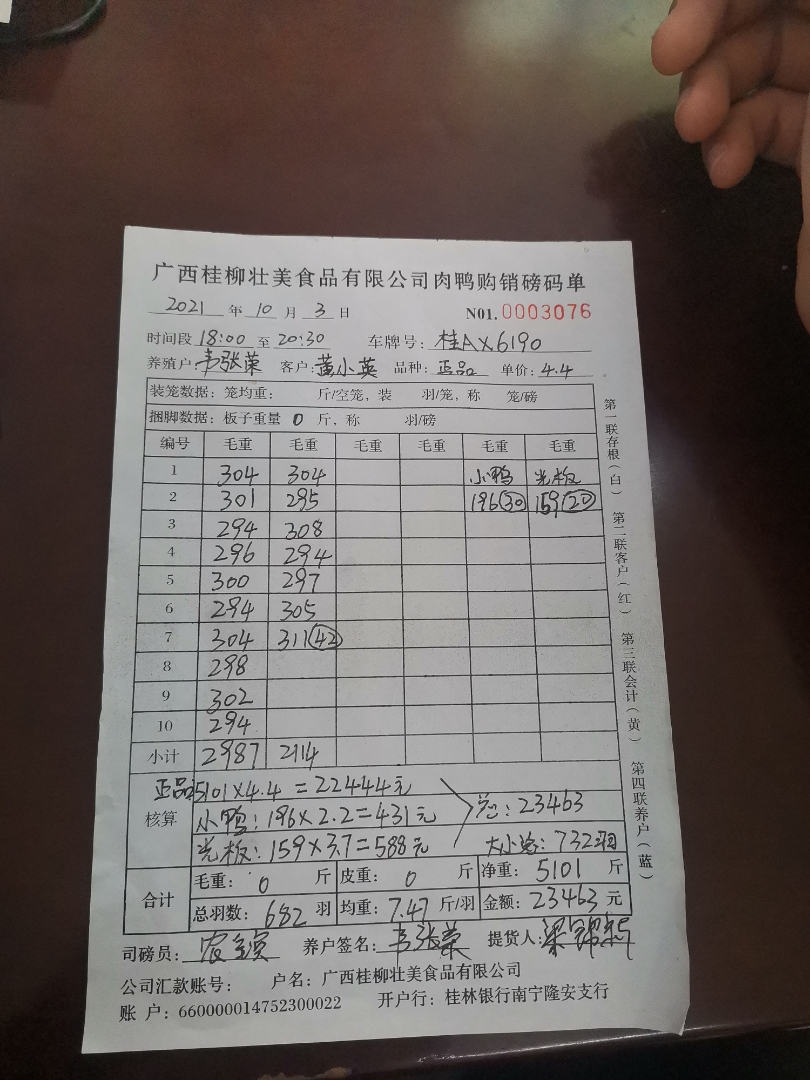 广西桂柳壮美食品有限公司肉鸭购销磅码单
2021 年 10 月 3 日 N01.0003076
时间段 18:00 至 20:30 车牌号: 桂AX6190
养殖户: 韦张荣 客户: 黄小英 品种: 正品 单价: 4.4
装笼数据: 笼均重: 斤/空笼, 装 羽/笼, 称 笼/磅
捆脚数据: 板子重量 0 斤, 称 羽/磅
编号 毛重 毛重 毛重 毛重 毛重 毛重
1 304 304 小鸭 光板
2 301 295 196(30) 159(20)
3 294 308
4 296 294
5 300 297
6 294 305
7 304 311(42)
8 298
9 302
10 294
小计 2987 2114
正品: 5101×4.4=22444元
核算 小鸭: 196×2.2=431元 总: 23463
光板: 159×3.7=588元 大小总: 732羽
合计 毛重: 0 斤 皮重: 0 斤 净重: 5101 斤
总羽数: 682 羽 均重: 7.47 斤/羽 金额: 23463 元
司磅员: 养户签名: 韦张荣 提货人:
公司汇款账号: 户名: 广西桂柳壮美食品有限公司
账 户: 660000014752300022 开户行: 桂林银行南宁隆安支行
第一联存根(白) 第二联客户(红) 第三联会计(黄) 第四联养户(蓝)